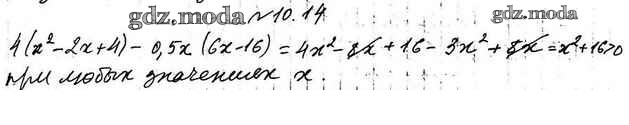 gdz.moda №10.14 gdz.moda
4(x²-2x+4)-0,5x(6x-16)=4x²-8x+16-3x²+8x=x²+16>0
при любых значениях x.